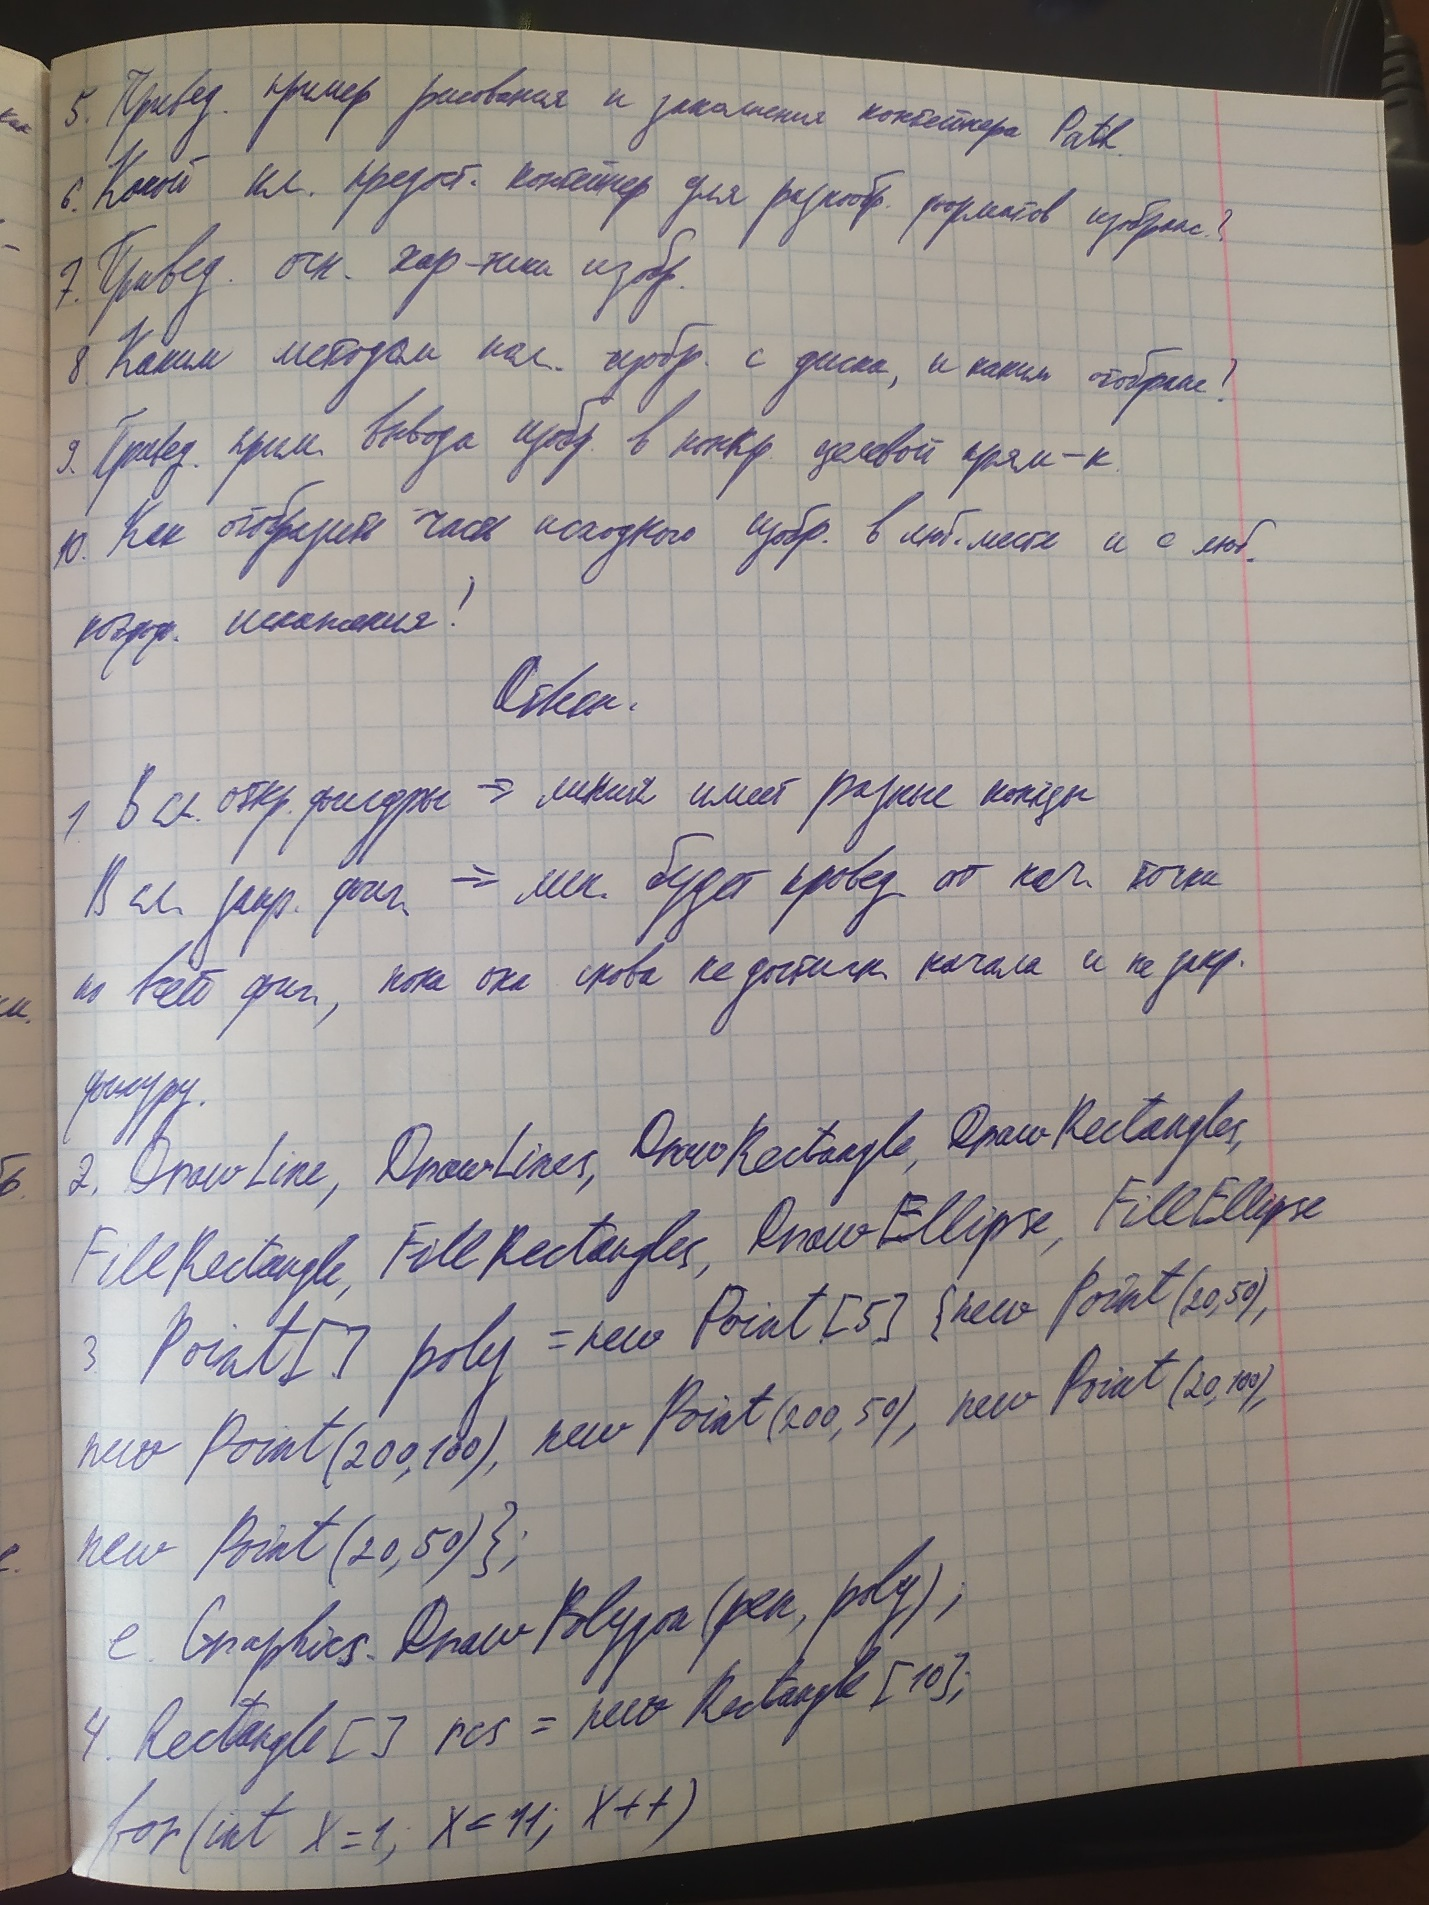 5. Привед. пример рисования и заполнения контейнера Path.
6. Какой кл. предост. контейнер для разнообр. форматов изображ.?
7. Привед. осн. хар-тики изобр.
8. Каким методом изобр. с диска, и каким отображ?
9. Привед. прим. вывода изобр. в конкр. целевой прям-к.
10. Как отобразить часть исходного изобр. в люб. месте и с люб.
коэфф. искажения?
Ответ.
1 В сл. откр. фигуры => линия имеет разные концы
В сл. закр. фиг. => лин. будет провед. от нач. точки
по всей фиг., пока она снова не достигн. начала и не закр.
фигуру.
2. DrawLine, DrawLines, DrawRectangle, DrawRectangles,
FillRectangle, FillRectangles, DrawEllipse, FillEllipse
3 Point[] poly = new Point[5] {new Point(20,50),
new Point(200,100), new Point(200,50), new Point(20,100),
new Point(20,50)};
e. Graphics. DrawPolygon(pen, poly);
4. Rectangle[] rcs = new Rectangle[10];
for(int x=1; x<11; x++)